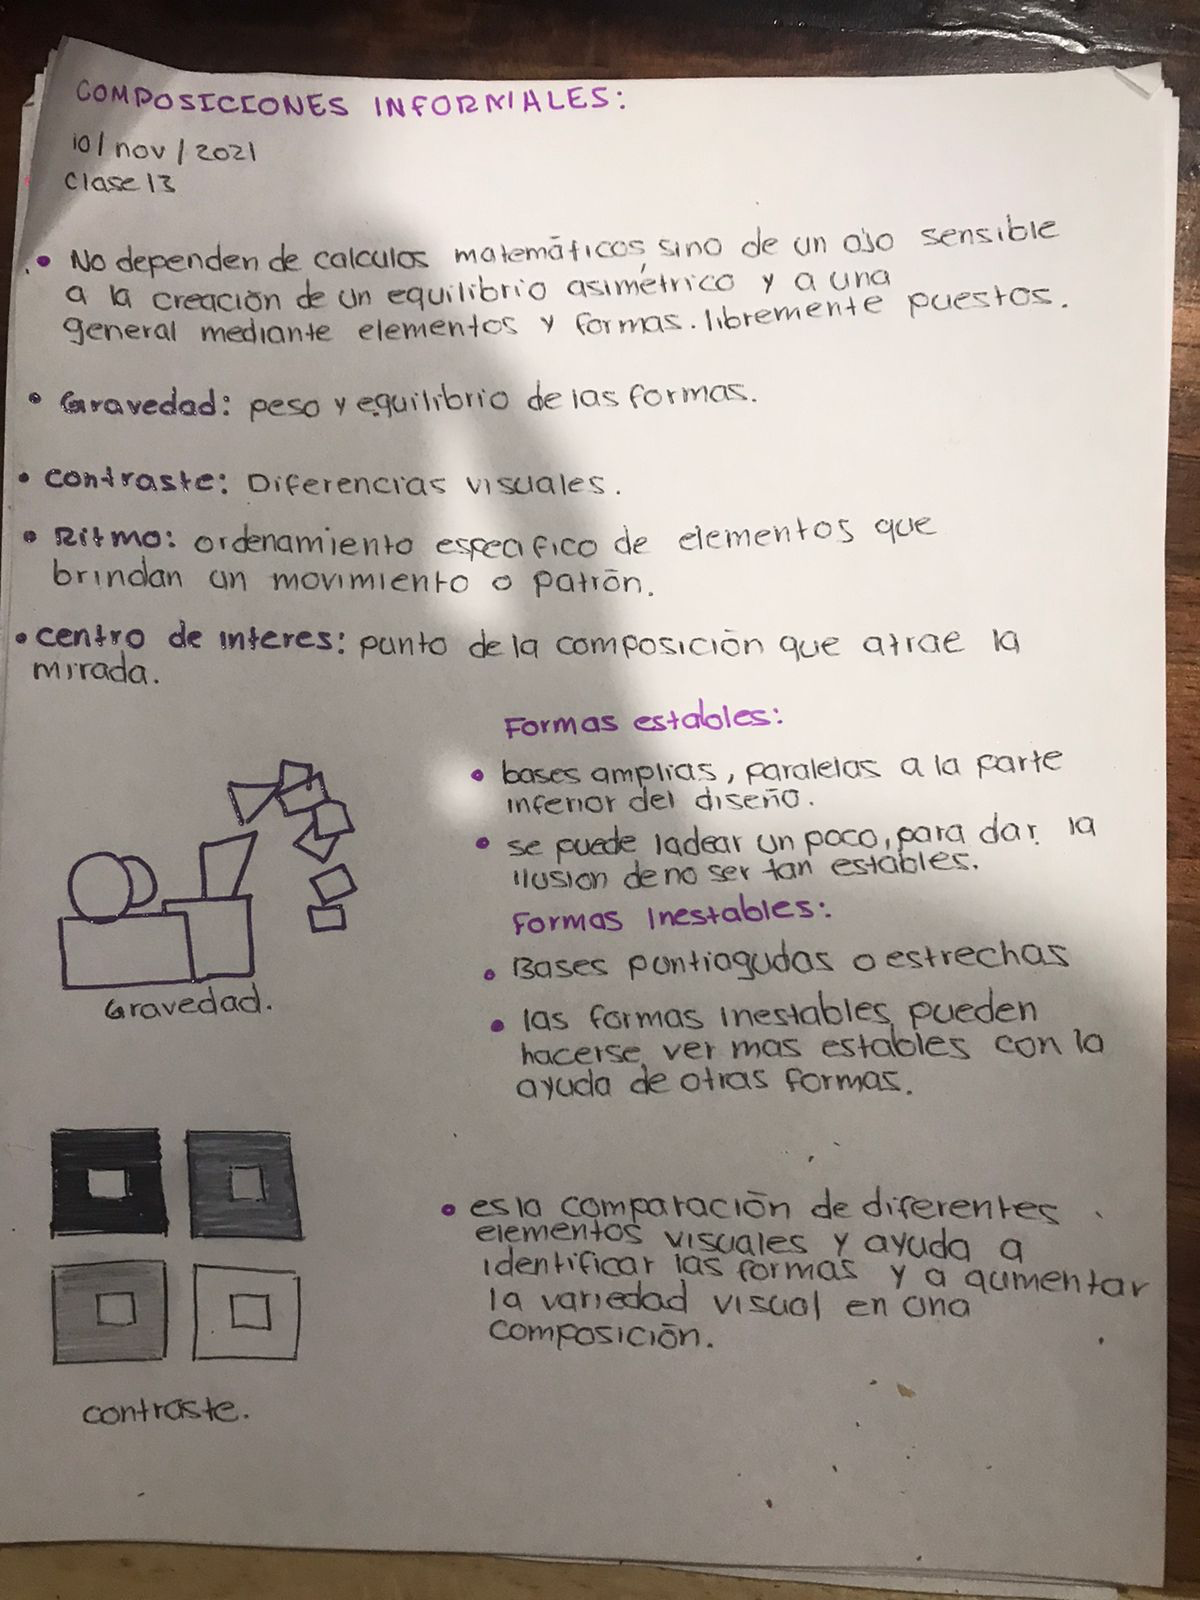 COMPOSICIONES INFORMALES:
10/nov/2021
Clase 13
• No dependen de calculos matemáticos, sino de un ojo sensible
a la creación de un equilibrio asimétrico y a una
general mediante elementos y formas. libremente puestos.
• Gravedad: peso y equilibrio de las formas.
• Contraste: Diferencias visuales.
• Ritmo: ordenamiento especifico de elementos que
brindan un movimiento o patrón.
• centro de interes: punto de la composición que atrae la
mirada.
Formas estables:
• bases amplias, paralelas a la parte
inferior del diseño.
• se puede ladear un poco, para dar la
ilusion de no ser tan estables.
Formas Inestables:
• Bases puntiagudas o estrechas
• las formas inestables pueden
hacerse ver mas estables con la
ayuda de otras formas.
Gravedad.
• es la comparación de diferentes
elementos visuales y ayuda a
identificar las formas y a aumentar
la variedad visual en una
composición.
contraste.